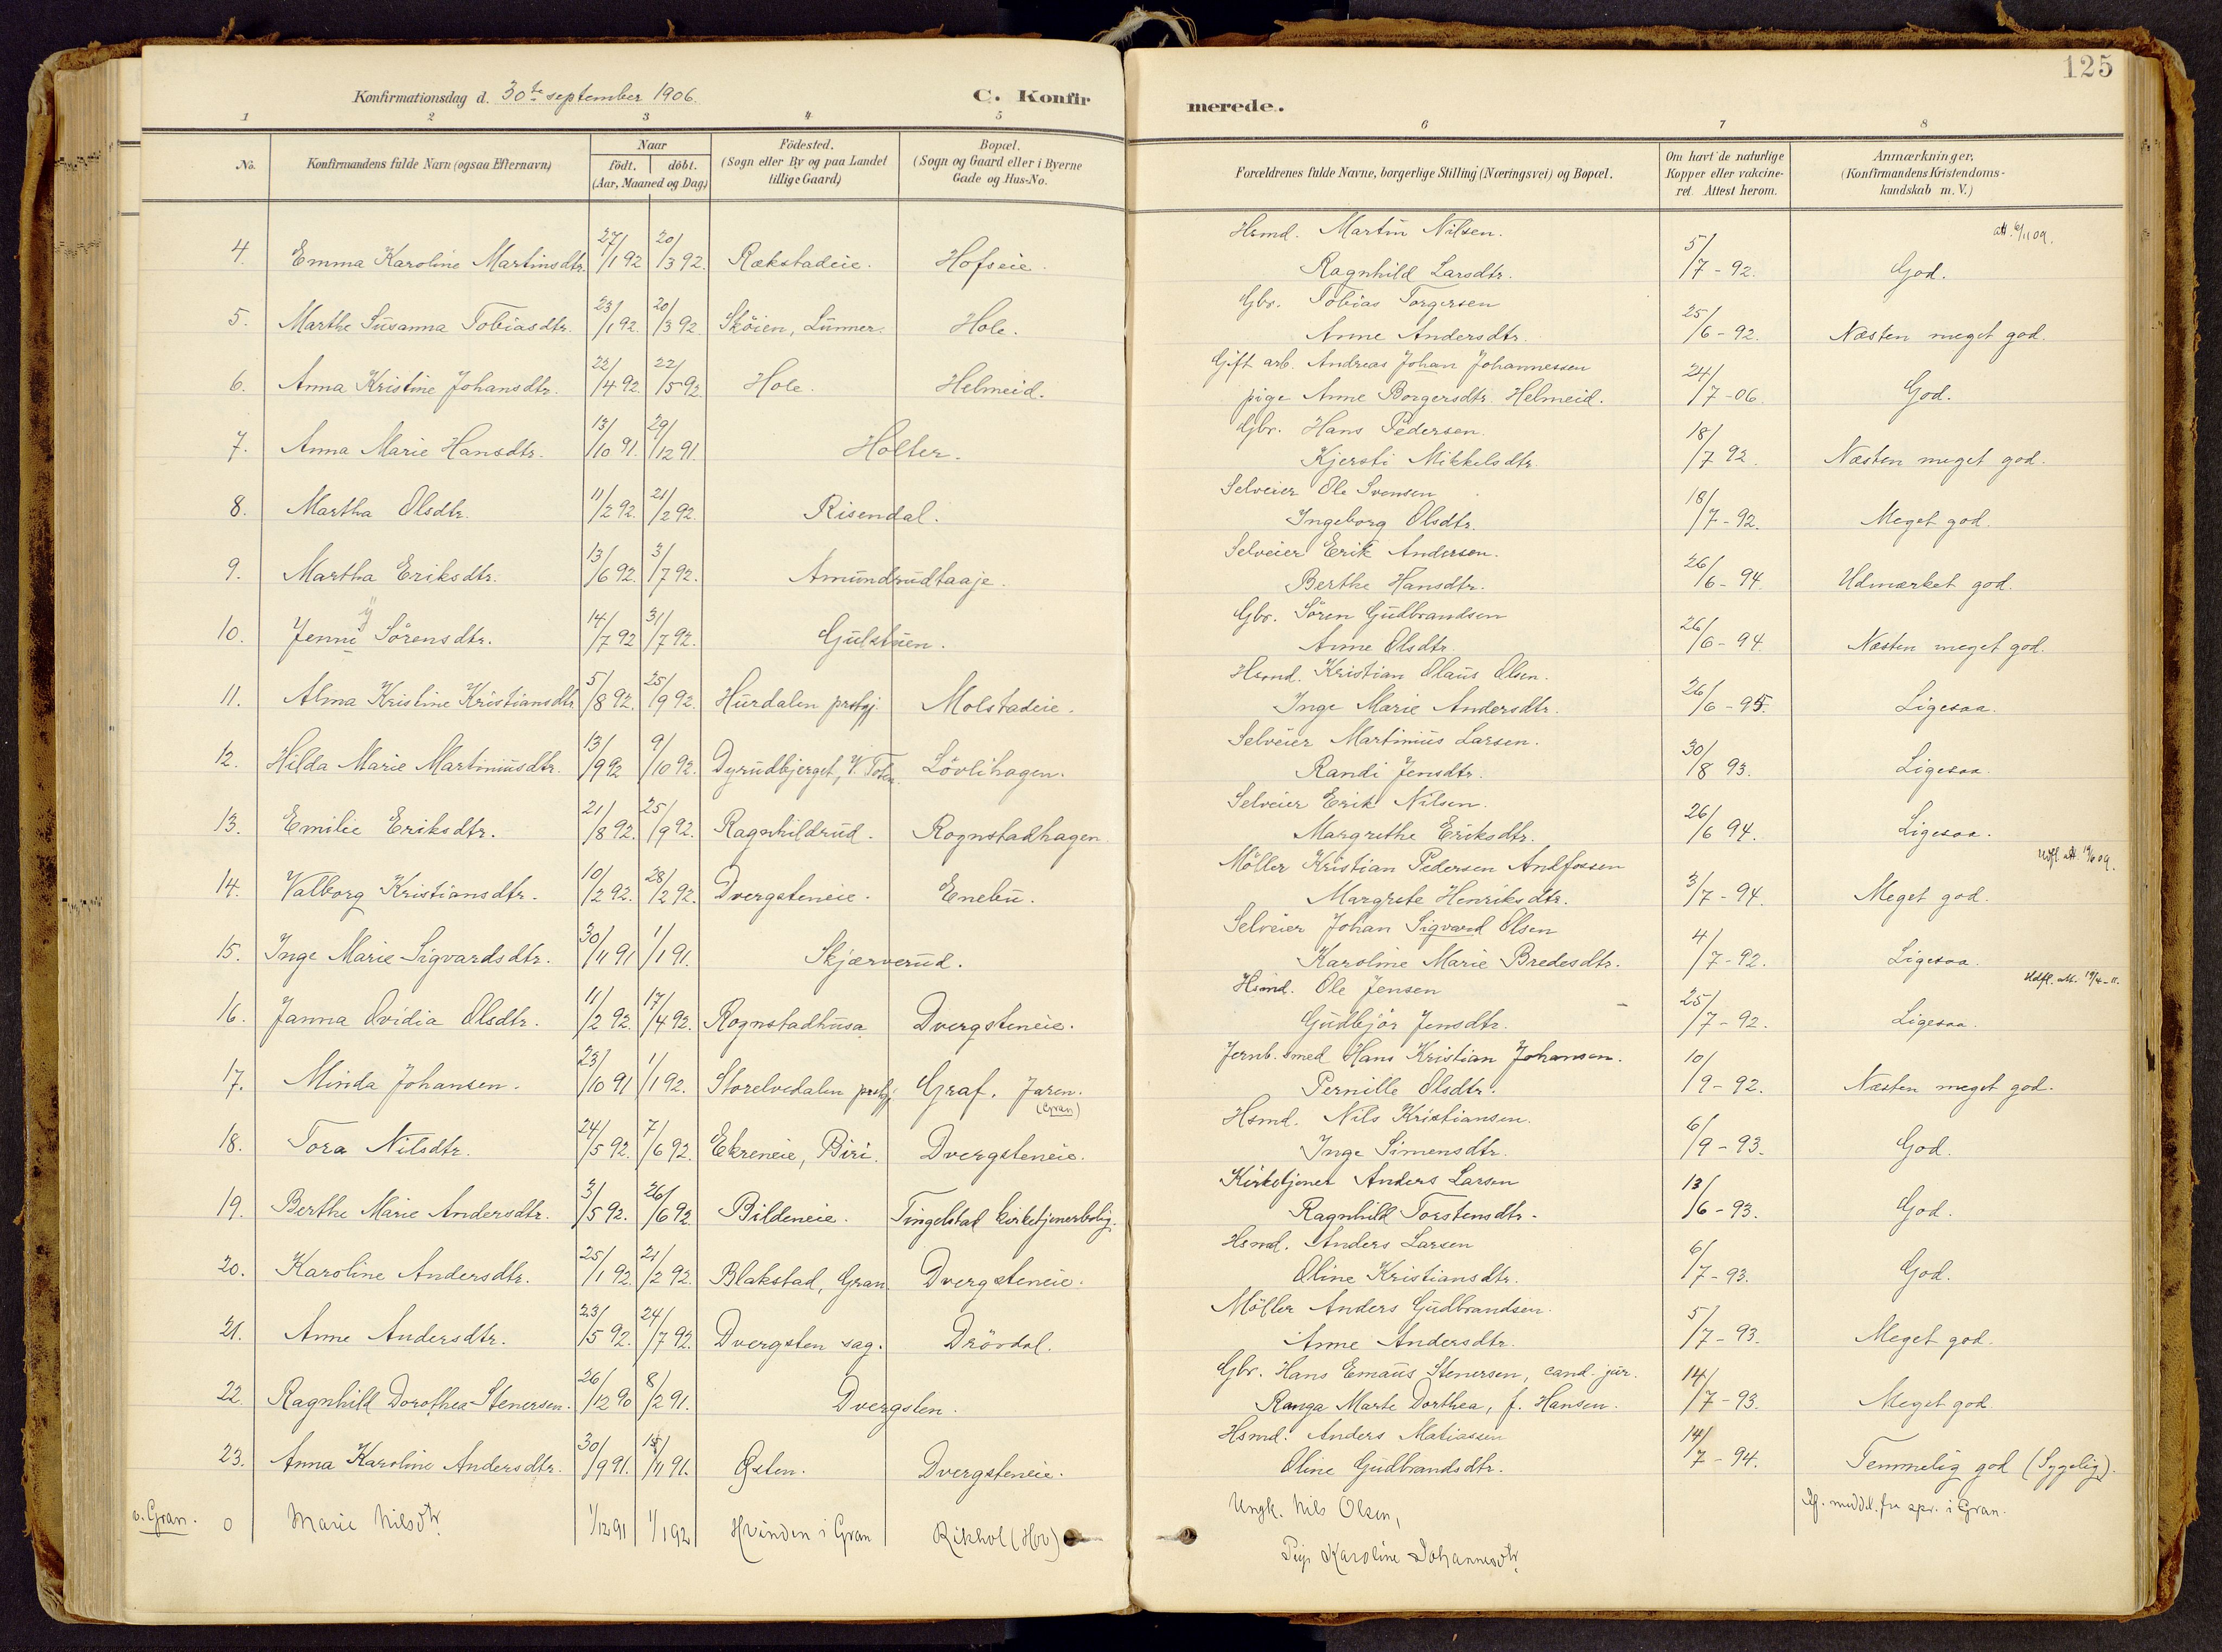 125
Konfirmationsdag d. 30te september 1906.
C. Konfirmerede.
1 2 3 4 5 6 7 8
No.
Konfirmandens fulde Navn (ogsaa Efternavn)
Naar
födt. döbt.
(Aar, Maaned og Dag)
Födested.
(Sogn eller By og paa Landet
tillige Gaard)
Bopæl.
(Sogn og Gaard eller i Byerne
Gade og Hus-No.
Forældrenes fulde Navne, borgerlige Stilling (Næringsvei) og Bopæl.
Om havt de naturlige
Kopper eller vakcine-
ret. Attest herom.
Anmærkninger,
(Konfirmandens Kristendoms-
kundskab m. V.)
Hsmd. Martin Nilsen.
4. Emma Karoline Martinsdtr. 27/1 92 20/3 92. Rækstadeie. Hofseie. Ragnhild Larsdtr. 5/7-92. God.
Gbr. Tobias Torgersen
5. Marthe Susanna Tobiasdtr. 23/1 92. 20/3 92 Sköien, Lunner. Hole. Anne Andersdtr. 25/6-92. Næsten meget god.
Gift arb. Andreas Johan Johannessen
6. Anna Kristine Johansdtr. 22/4 92. 22/5 92 Hole. Helmeid. pige Anne Borgersdtr. Helmeid. 24/7-06. God.
Gbr. Hans Pedersen.
7. Anna Marie Hansdtr. 13/10 91. 29/12 91. Holter. Kjersti Mikkelsdtr. 18/7 92. Næsten meget god.
Selveier Ole Svensen
8. Martha Olsdtr. 11/2 92. 21/2 92. Risendal. Ingeborg Olsdtr. 18/7-92. Meget god.
Selveier Erik Andersen.
9. Martha Eriksdtr. 13/6 92. 3/7 92. Amundrudtaaje. Berthe Hansdtr. 26/6-94. Udmærket god.
Gbr. Sören Gudbrandsen
10. Jenni Sörensdtr. 14/7 92 31/7 92. Gulstuen. Anne Olsdtr. 26/6-94. Næsten meget god.
Hsmd. Kristian Olaus Olsen.
11. Alma Kristine Kristiansdtr 5/8 92. 25/9 92. Hurdalen prstgj. Molstadeie. Inge Marie Andersdtr. 26/6-95. Ligesaa.
Selveier Martinius Larsen.
12. Hilda Marie Martiniusdtr. 13/9 92 9/10 92. Dyrudbjerget, V. Toten. Lövlihagen. Randi Jensdtr. 30/8 93. Ligesaa.
Selveier Erik Nilsen.
13. Emilie Eriksdtr. 21/8 92. 25/9 92. Ragnhildrud. Rognstadhagen. Margrethe Eriksdtr. 26/6 94. Ligesaa.
Möller Kristian Pedersen Andfossen
14. Valborg Kristiansdtr. 10/2 92. 28/2 92. Dvergsteneie. Enebu. Margrete Henriksdtr. 3/7-94. Meget god.
Selveier Johan Sigvard Olsen
15. Inge Marie Sigvardsdtr. 30/11 91 1/1 91. Skjærverud. Karoline Marie Bredesdtr. 4/7-92. Ligesaa.
Hsmd. Ole Jensen
16. Janna Ovidia Olsdtr. 11/2 92. 17/4 92. Rognstadhusa Dvergsteneie. Gudbjör Jensdtr. 25/7-92. Ligesaa.
Jernb. smed Hans Kristian Johansen.
17. Minda Johansen. 23/10 91 1/1 92. Storelvedalen prstgj. Graf. Jaren. (Gran) Pernille Olsdtr. 10/9-92. Næsten meget god.
Hsmd. Nils Kristiansen.
18. Tora Nilsdtr. 24/5 92. 7/6 92. Ekreneie, Biri. Dvergsteneie. Inge Simensdtr. 6/9-93. God.
Kirketjener Anders Larsen
19. Berthe Marie Andersdtr. 3/5 92. 26/6 92 Bildeneie. Tingelstad kirketjenerbolig. Ragnhild Torstensdtr. 13/6-93. God.
Hsmd. Anders Larsen
20. Karoline Andersdtr. 25/1 92. 21/2 92. Blakstad, Gran. Dvergsteneie. Oline Kristiansdtr. 6/7-93. God.
Möller Anders Gudbrandsen.
21. Anne Andersdtr. 23/5 92. 24/7 92. Dvergsten sag. Drövdal. Anne Andersdtr. 5/7-93. Meget god.
Gbr. Hans Emaus Stenersen, cand. jur.
22. Ragnhild Dorothea Stenersen. 26/12 90 8/2 91. Dvergsten. Ranga Marte Dorthea, f. Hansen. 14/7-93. Meget god.
Hsmd. Anders Matiassen
23. Anna Karoline Andersdtr. 30/9 91. 15/11 91. Østen. Dvergsteneie. Oline Gudbrandsdtr. 14/7-94. Temmelig god (Sygelig).
Ungk. Nils Olsen,
v. Gran. 0 Marie Nilsdtr. 1/12 91 1/1 92 Hvinden i Gran Rikhol (Hbr) Pige Karoline Johannesdtr. meddel. fra spr. i Gran.